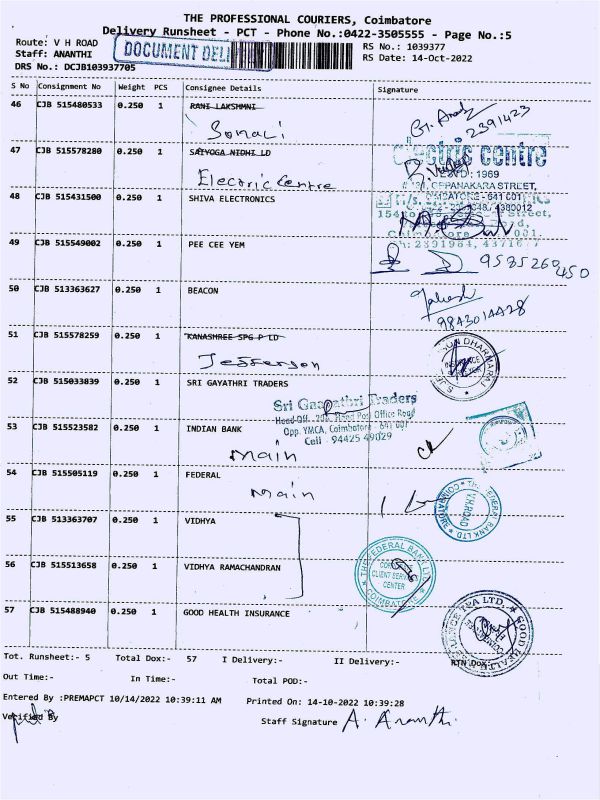 THE PROFESSIONAL COURIERS, Coimbatore
Delivery Runsheet - PCT - Phone No.:0422-3505555 - Page No.:5
Route: V H ROAD
RS No.: 1039377
Staff: ANANTHI
DOCUMENT DELI
RS Date: 14-Oct-2022
DRS No.: DCJB103937705
S No Consignment No Weight PCS Consignee Details Signature
46 CJB 515480533 0.250 1 RANI LAKSHMNI
Sonali
2391423
47 CJB 515578280 0.250 1 SAIYOGA NIDHI LD
Electric Centre
electric centre
ESTD: 1969
OPPANAKARA STREET,
COIMBATORE - 641 001
48 CJB 515431500 0.250 1 SHIVA ELECTRONICS
4380012
Street,
Ph: 2391984,
49 CJB 515549002 0.250 1 PEE CEE YEM
9535260450
50 CJB 513363627 0.250 1 BEACON
9843014428
51 CJB 515578259 0.250 1 KANASHREE SPG P LD
Jefferson
SUN DHARMARAJ
52 CJB 515033839 0.250 1 SRI GAYATHRI TRADERS
Sri Gayathri Traders
Head Post Office Road
Opp. YMCA, Coimbatore - 641 001
Cell : 94425 49029
53 CJB 515523582 0.250 1 INDIAN BANK
Main
54 CJB 515505119 0.250 1 FEDERAL
Main
THE FEDERAL BANK LTD
COIMBATORE
V.H.ROAD
55 CJB 513363707 0.250 1 VIDHYA
56 CJB 515513658 0.250 1 VIDHYA RAMACHANDRAN
THE FEDERAL BANK LTD
CLIENT SERVICE
CENTER
COIMBATORE
57 CJB 515488940 0.250 1 GOOD HEALTH INSURANCE
GOOD HEALTH
TPA LTD.
Tot. Runsheet:- 5 Total Dox:- 57 I Delivery:- II Delivery:- RTN Dox:-
Out Time:- In Time:- Total POD:-
Entered By :PREMAPCT 10/14/2022 10:39:11 AM Printed On: 14-10-2022 10:39:28
Verified By
Staff Signature A. Ananthi.